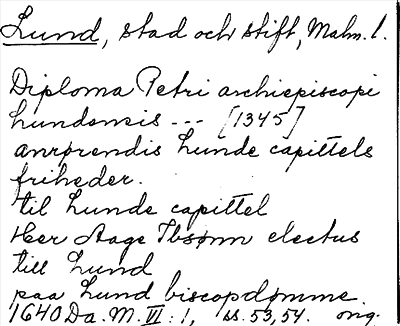 Lund, stad och stift, Malm. l.
Diploma Petri archiepiscopi
Lundensis --- [1345]
anrørendis Lunde capittels
friheder.
til Lunde capittel
Her Aage Ibsønn electus
till Lund
paa Lund biscopdømme.
1640 Da. M. VI: 1, ss. 53, 54. orig.